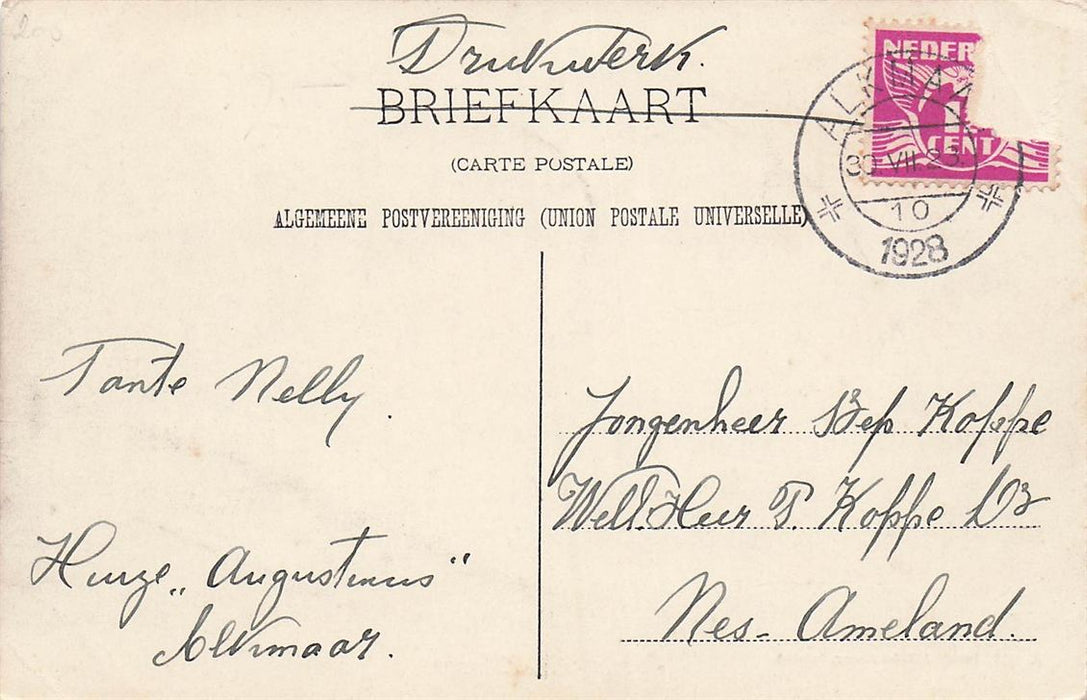 Drukwerk.
BRIEFKAART
(CARTE POSTALE)
ALGEMEENE POSTVEREENIGING (UNION POSTALE UNIVERSELLE)
NEDER
CENT
ALKMAA
30 VII.23.
10
1928
Tante Nelly.
Huize „Augustinus“
Alkmaar.
Jongenheer Bep Koppe
Weled.Heer P. Koppe
Nes - Ameland.